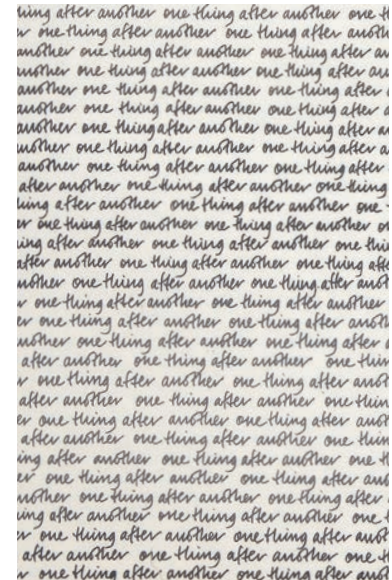 thing after another one thing after another one
one thing after another one thing after
another one thing after another one thing after
thing after another one thing after another one
another one thing after another one thing after
another one thing after another one thing after
another one thing after another one thing after
another one thing after another one thing after
another one thing after another one thing after
after another one thing after another one thing
thing after another one thing after another one
one thing after another one thing after another
after another one thing after another one
after another one thing after another one thing
another one thing after another one thing after
one thing after another one thing after another
one thing after another one thing after another
another one thing after another one thing after
after another one thing after another one
one thing after another one thing after
after another one thing after another one
one thing after another one thing after
after another one thing after another one
after another one thing after another one
one thing after another one thing after
another one thing after another one thing after
after another one thing after another one
one thing after another one thing after
after another one thing after another one
one thing after another one thing after